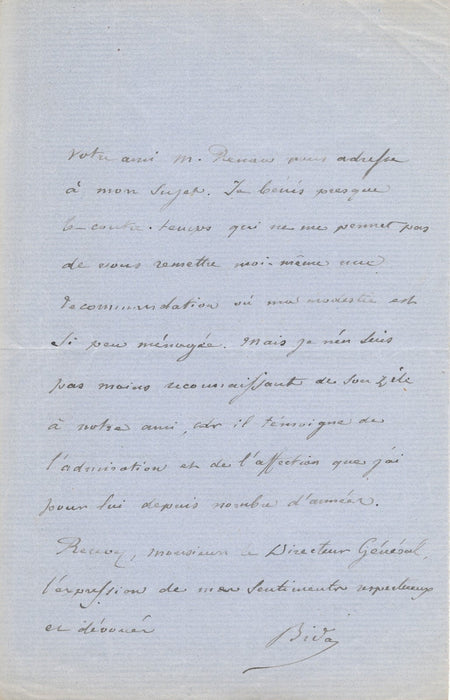 votre ami M. Renan vous adresse
à mon sujet. Je bénis presque
le contre-temps qui ne me permet pas
de vous remettre moi-même une
recommandation où ma modestie est
si peu ménagée. Mais je n'en suis
pas moins reconnaissant de son zèle
à votre ami, car il témoigne de
l'admiration et de l'affection que j'ai
pour lui depuis nombre d'années.
Recevez, monsieur le Directeur Général,
l'expression de mes sentiments respectueux
et dévoués
Bida